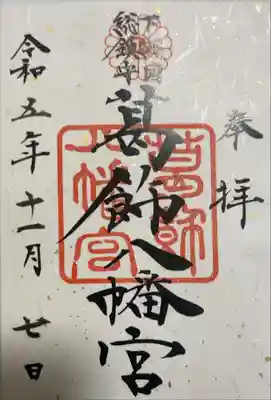 奉拝
下総国
総鎮守
葛飾八幡宮
葛飾
八幡宮
令和五年十一月七日